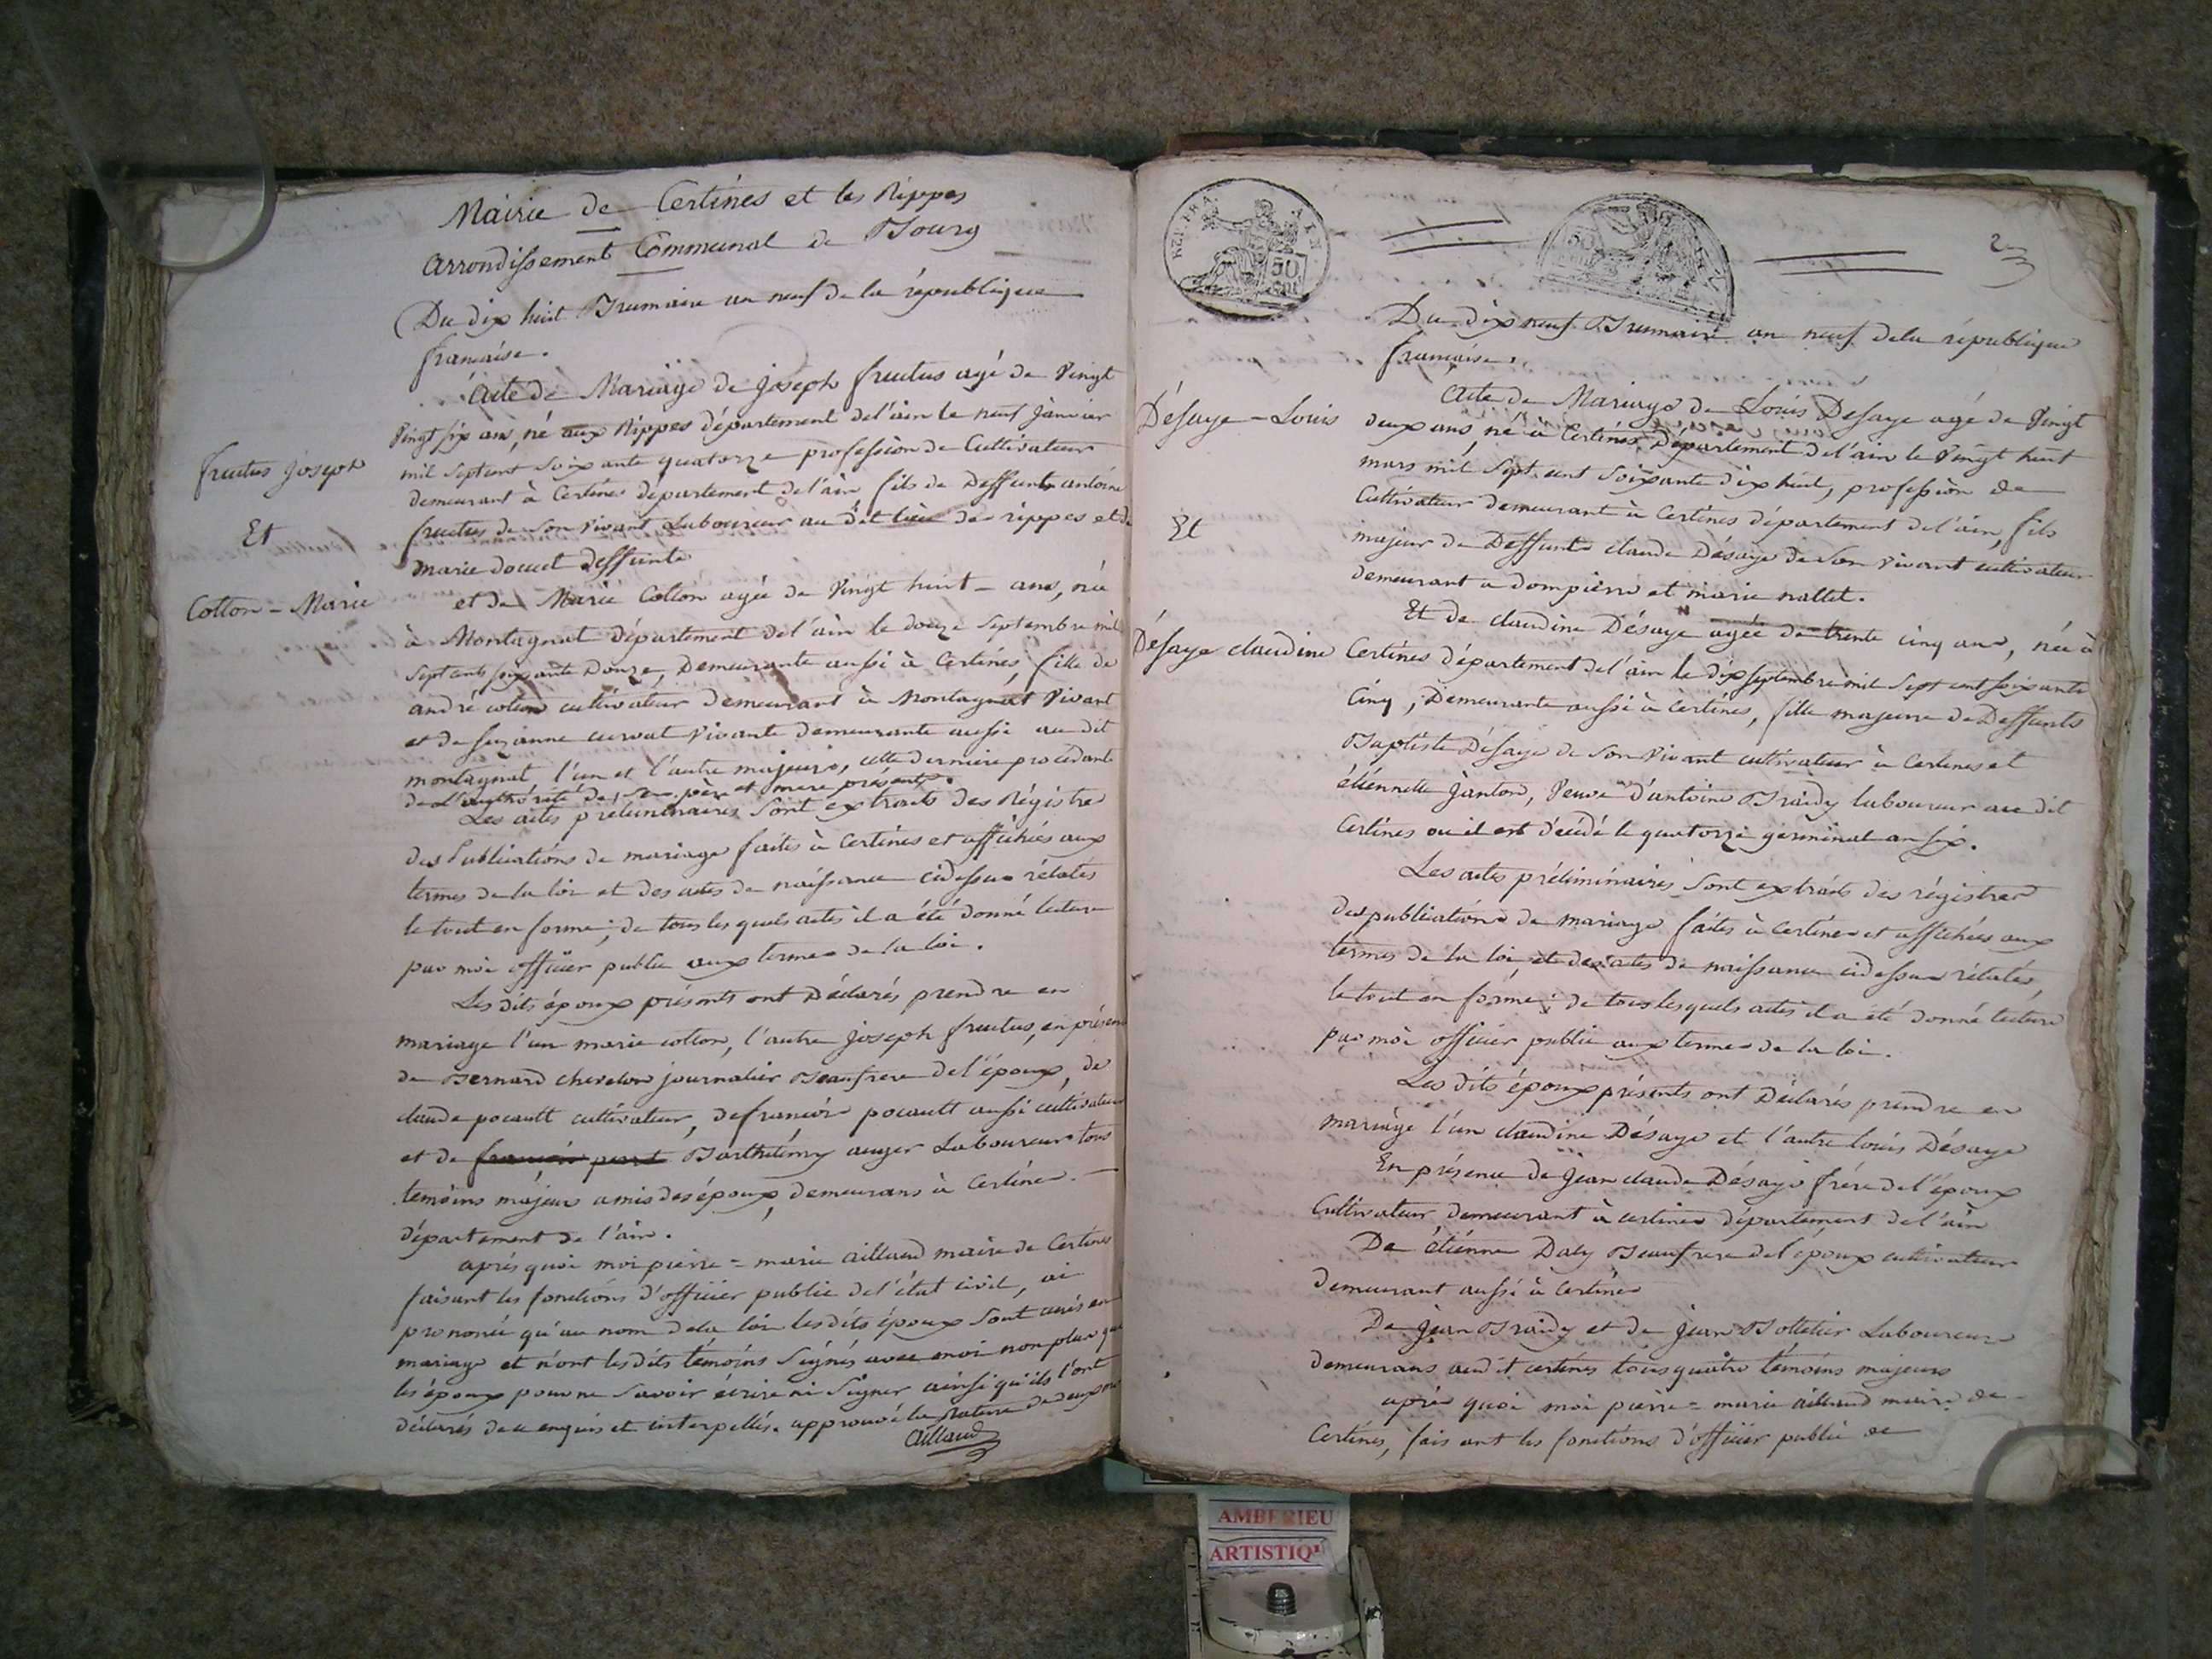 Mairie de Certines et les Rippes
arrondissement Communal de Bourg
Du dix huit Brumaire an neuf de la république
française.
acte de Mariage de joseph fructus agé de Vingt
Vingt six ans, né aux Rippes département de l'ain le neuf janvier
mil septcent soixante quatorze profession de Cultivateur
demeurant à Certines département de l'ain, fils de deffunts antoine
fructus de son vivant Laboureur au dit lieu de rippes et de
marie deffunte
fructus joseph
Et
Cotton - Marie
et de Marie Cotton agée de Vingt huit ans, née
à Montagnat département de l'ain le douze Septembre mil
Septcent soixante Douze, Demeurante aussi à Certines, fille de
andré cotton cultivateur demeurant à Montagnat Vivant
et de suzanne Vivante demeurante aussi au dit
montagnat, l'un et l'autre majeurs, cette derniere procédant
de L'authorité de ses père et mere présents.
Les actes préliminaires sont extraits des Régistres
des Publications de mariage faites à Certines et affichées aux
termes de la loi et des actes de naissance cidessus rélatés
le tout en forme; de tous les quels actes il a été donné lecture
par moi officier public aux termes de la loi.
Les dits époux présents ont Déclarés prendre en
mariage l'un marie cotton, l'autre joseph fructus, en présence
de Bernard chevelon journalier Beaufrere de l'époux, de
claude pocault cultivateur, de françois pocault aussi cultivateur
et de Barthélemy auger Laboureur tous
temoins majeurs amis des époux, demeurans à Certines
département de l'ain.
après quoi moi pierre = marie aillaud maire de Certines
faisant les fonctions d'officier public de l'état civil, ai
prononcé qu'au nom de la loi les dits époux sont unis en
mariage et n'ont les dits témoins Signés avec moi non plus que
les époux pour ne savoir écrire ni Signer ainsi qu'ils l'ont
déclarés de ce enquis et interpellés. approuvé la Rature de deux mots
Aillaud
REP. FRA
50
CENT
2
Du dix neuf Brumaire an neuf de la république
française.
Désaye - Louis
Et
Désaye claudine
acte de Mariage de Louis Desaye agé de Vingt
deux ans, né à Certines Département de l'ain le Vingt huit
mars mil sept cent soixante dix huit, profession de
Cultivateur demeurant à Certines département de l'ain, fils
majeur de Deffunts claude Désaye de son vivant cultivateur
demeurant a dompierre et marie nallet.
Et de claudine Désaye agée de trente cinq ans, née à
Certines département de l'ain le dix septembre mil sept cent soixante
Cinq, Demeurante aussi à Certines, fille majeure de Deffunts
Baptiste Désaye de son vivant cultivateur à Certines et
étiennette janton, Veuve d'antoine Braidy laboureur au dit
Certines ou il est décédé le quatorze germinal an six.
Les actes préliminaires sont extraits des régistres
des publications de mariage faites à Certines et affichées aux
termes de la loi, et des actes de naissance cidessus rélatés,
le tout en forme; de tous les quels actes il a été donné lecture
par moi officier public aux termes de la loi.
Les dits époux présents ont Déclarés prendre en
mariage l'un claudine Désaye et l'autre louis Désaye
En présence de Jean claude Désaye frére de l'époux
Cultivateur, demeurant à certines département de l'ain
De étiénne Daly Beaufrere de l'epoux cultivateur
demeurant aussi à Certines
De jean Braidy et de jean Bolletier Laboureurs
demeurans au dit certines tous quatre témoins majeurs
après quoi moi pierre = marie aillaud maire de
Certines, faisant les fonctions d'officier public de
AMBERIEU
ARTISTIQ